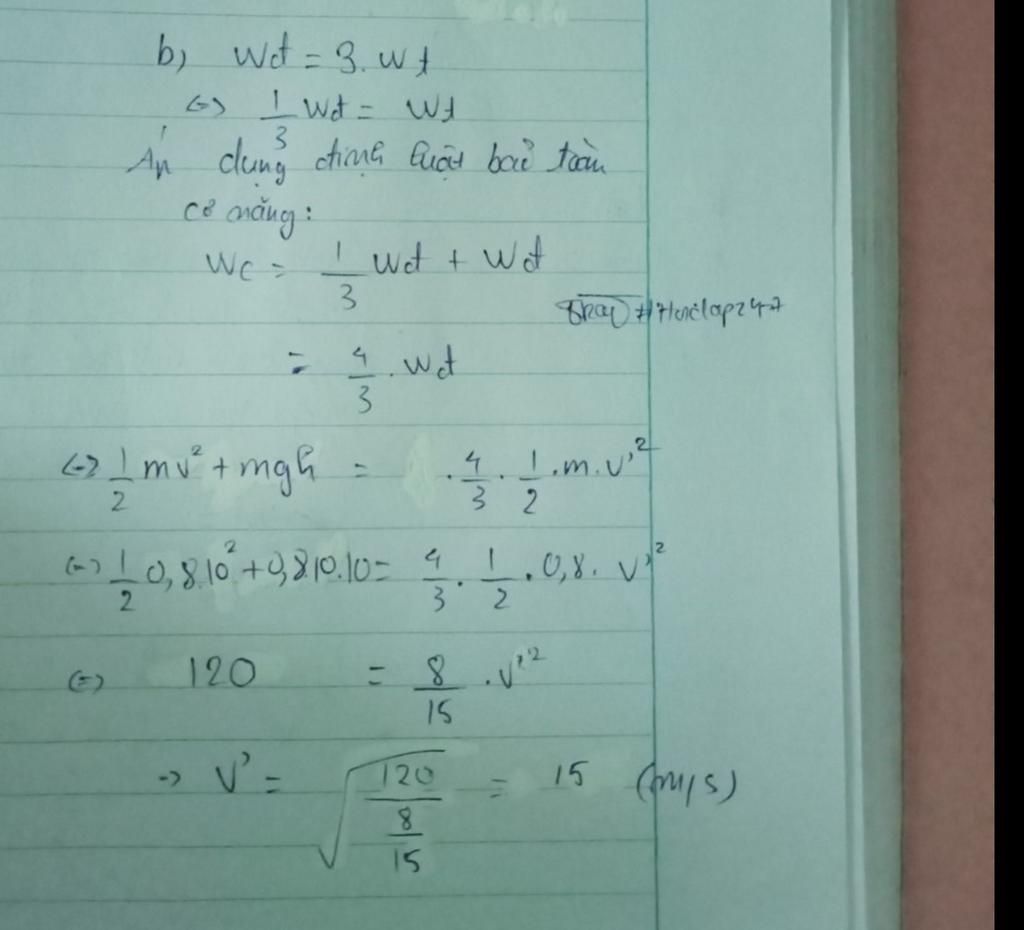 b) Wđ = 3. Wt
<=> 1/3 Wđ = Wt
Áp dụng định luật bảo toàn
cơ năng:
Wc = 1/3 Wđ + Wđ
= 4/3 . Wđ
<=> 1/2 mv² + mgh = . 4/3 . 1/2 .m. v'²
<=> 1/2 0,8.10² + 0,8.10.10 = 4/3 . 1/2 . 0,8. v'²
<=> 120 = 8/15 . v'²
-> v' = √(120/(8/15)) = 15 (m/s)